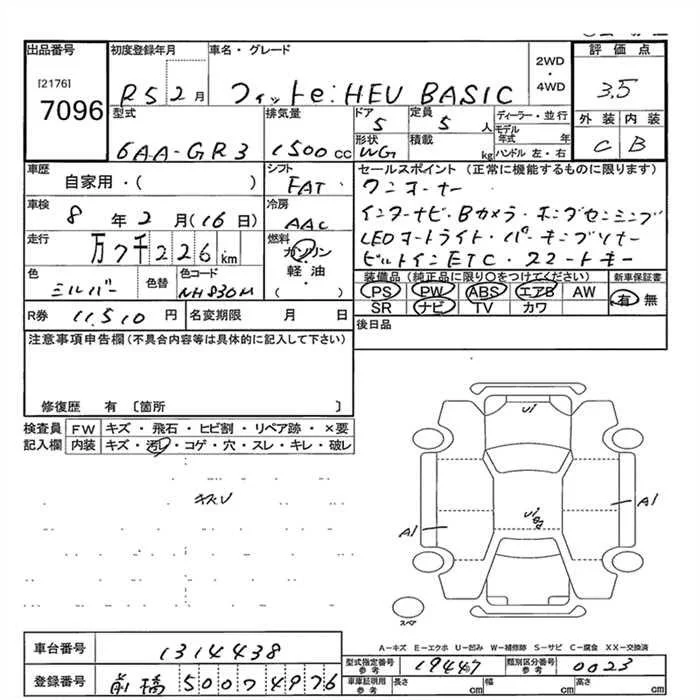 出品番号 初度登録年月 車名・グレード 2WD・4WD 評価点
[2176]
7096 R5 2月 フィット e:HEV BASIC 3.5
型式 排気量 ドア 5 定員 5人 ディーラー・並行 外装 内装
6AA-GR3 1500cc 形状 WG 積載 kg モデル年式 年 ハンドル 左・右 C B
車歴 自家用・( ) シフト FAT セールスポイント (正常に機能するものに限ります)
ワンオーナー
車検 8年2月(16日) 冷房 AAC インターナビ・Bカメラ・ホンダセンシング
走行 万7千226km 燃料 ガソリン・軽油・( ) LEDオートライト・パーキングソナー
ビルトインETC・スマートキー
色 シルバー 色替 色コード NH830M 装備品 (純正品に限り○をつけてください) 新車保証書
PS PW ABS エアB AW 有 無
SR ナビ TV カワ
R券 11,510円 名変期限 月 日 後日品
注意事項申告欄(不具合内容等は具体的に記入して下さい)
修復歴 有 〔箇所 〕
検査員 FW キズ・飛石・ヒビ割・リペア跡・×要
記入欄 内装 キズ・汚レ・コゲ・穴・スレ・キレ・破レ
Ui
A1
A1
スペア
A-キズ E-エクボ U-凹み W-補修跡 S-サビ C-腐食 XX-交換済
車台番号 1314438 型式指定番号 参考 19447 類別区分番号 参考 0023
登録番号 前橋 500 7 4976 車庫証明用 参考 長さ cm 幅 cm 高さ cm